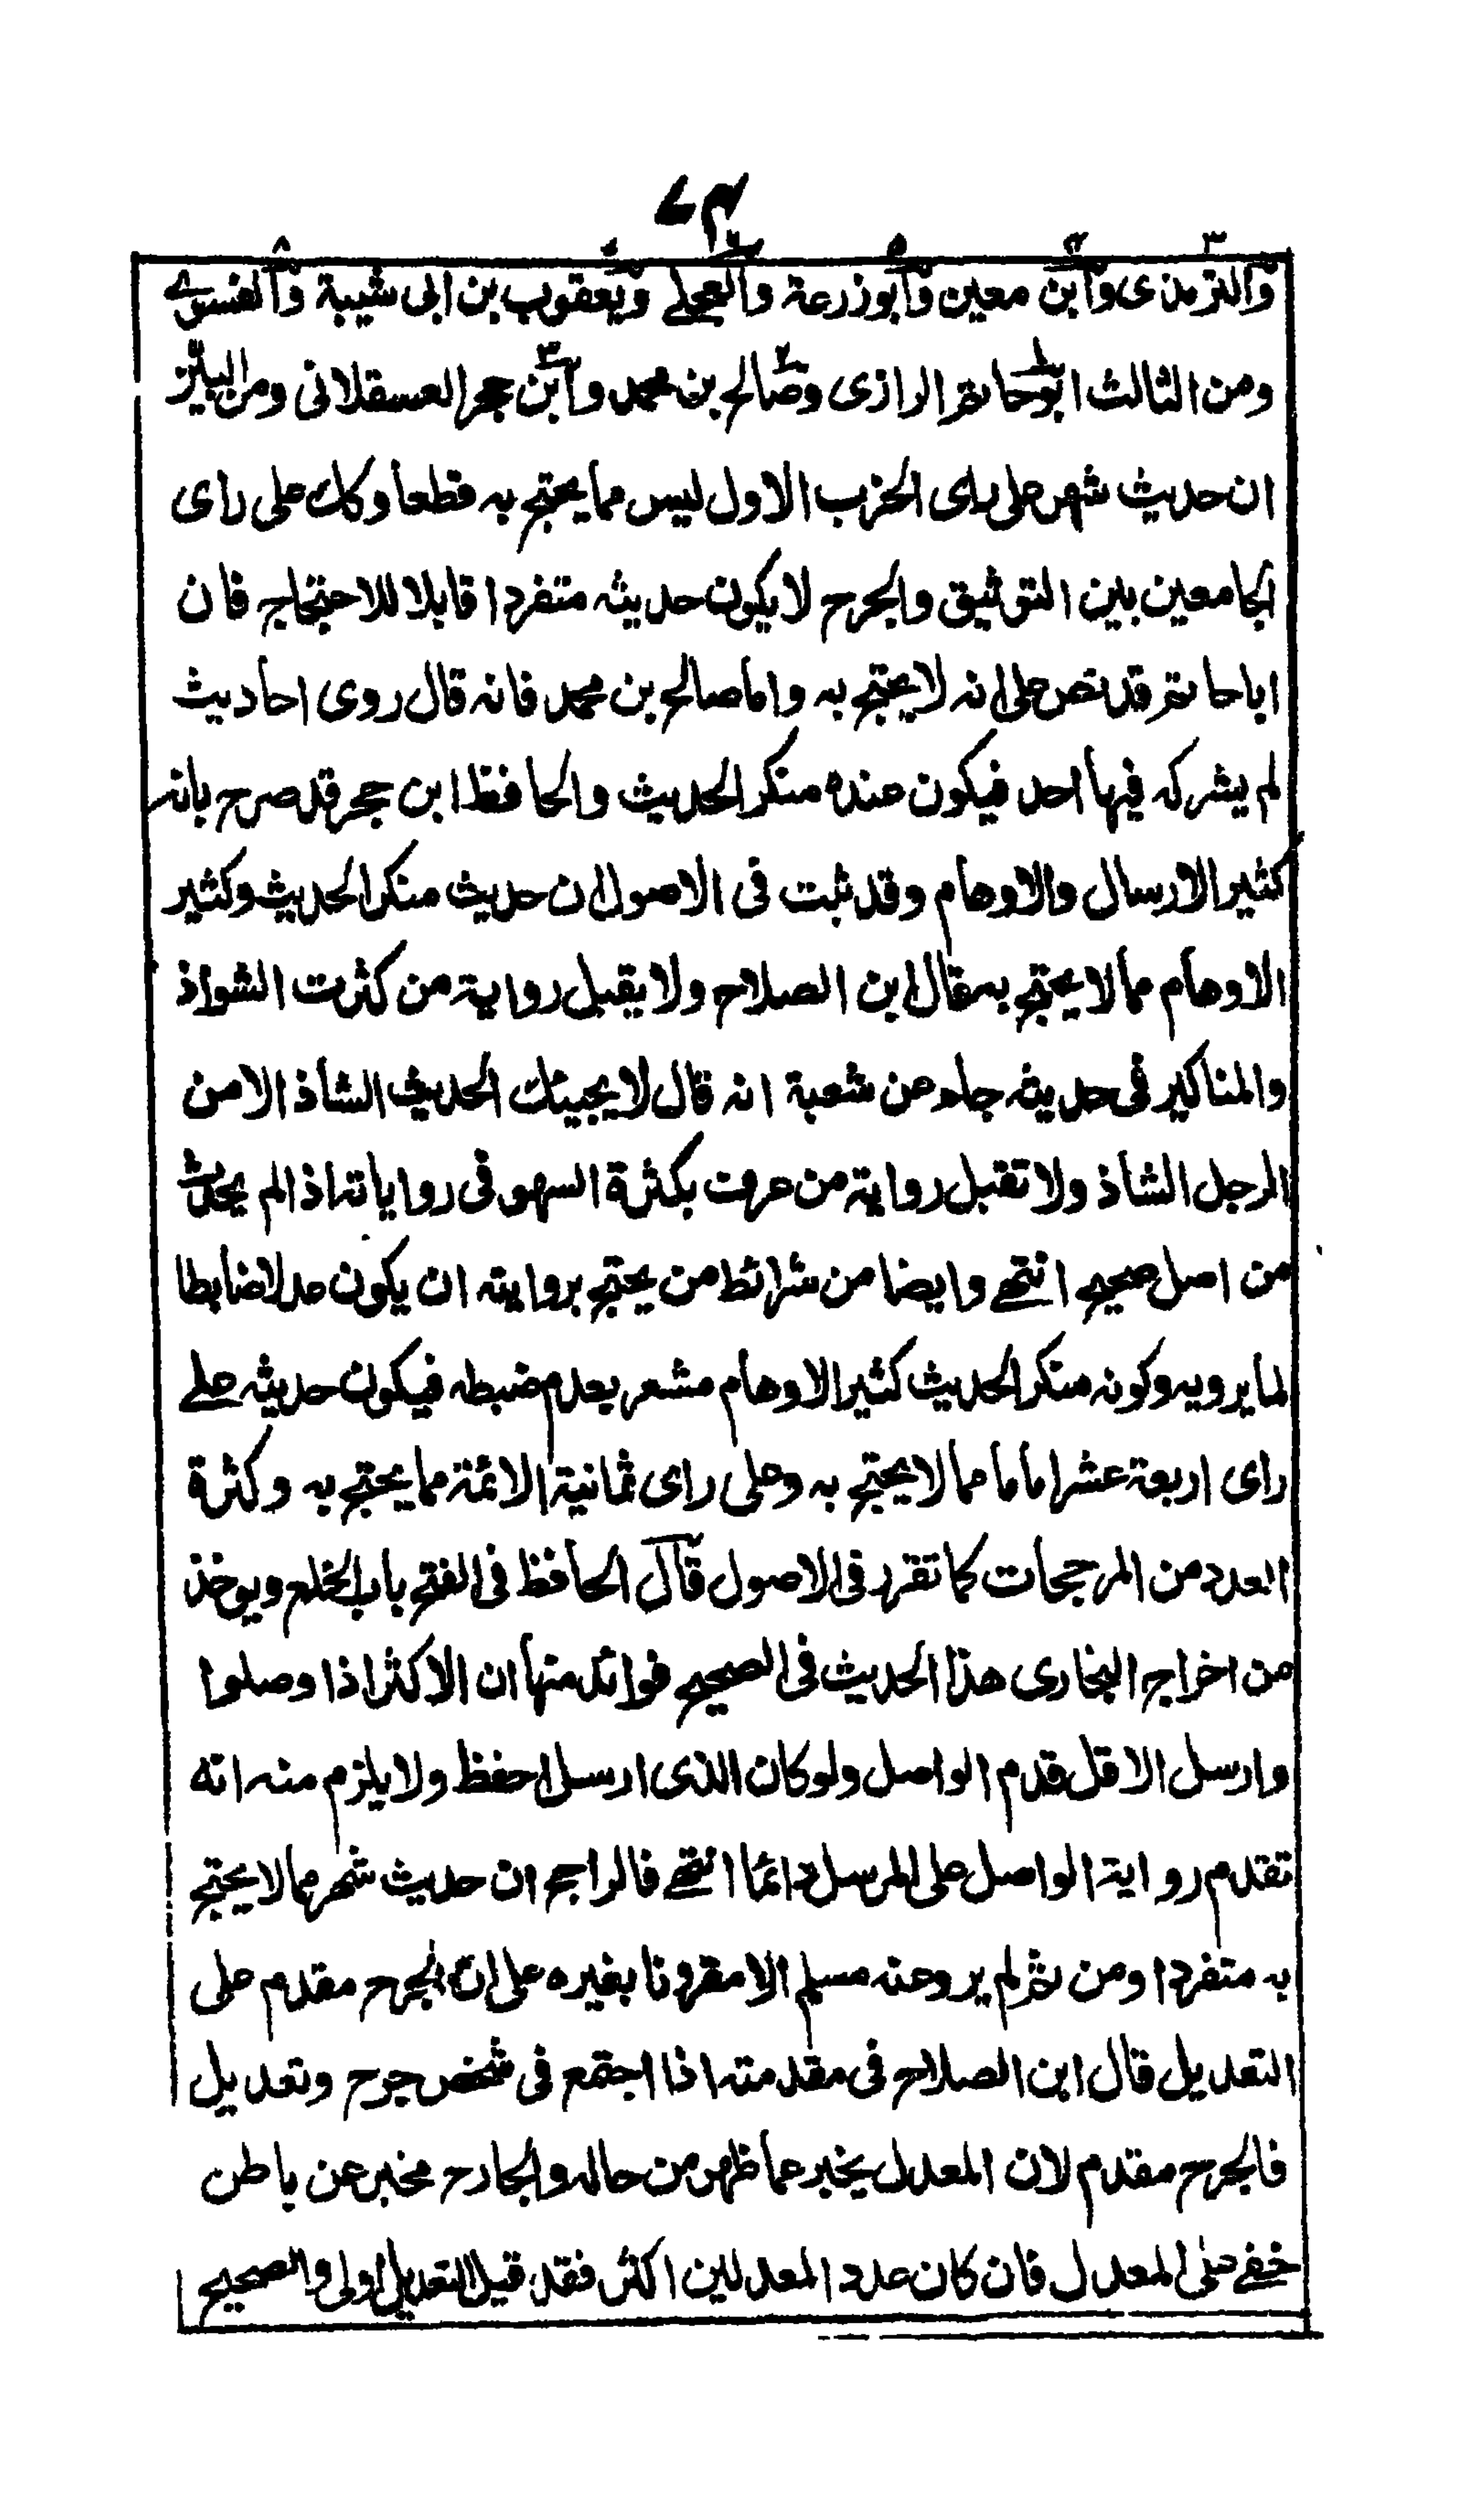 ٤٣
والترمذى وابن معين وابو زرعة والعجلے ويعقوب بن ابى شيبة والفسوے
ومن الثالث ابو حاتم الرازى وصالح بن محمد وابن حجر العسقلانى ومن البين
ان حديث شهر على راى الحزب الاول ليس مما يحتج به قطعا وكذلك على راى
الجامعين بين التوثيق والجرح لا يكون حديثه متفردا قابلا للاحتجاج فان
اباحاتم قد نص على انه لا يحتج به واما صالح بن محمد فانه قال روى احاديث
لم يشركه فيها احد فيكون عنده منكر الحديث والحافظ ابن حجر قد صرح بانه
كثير الارسال والاوهام وقد ثبت فى الاصول ان حديث منكر الحديث وكثير
الاوهام مما لا يحتج به قال ابن الصلاح ولا يقبل رواية من كثرت الشواذ
والمناكير فى حديثه جاء عن شعبة انه قال لا يجيئك الحديث الشاذ الا من
الرجل الشاذ ولا تقبل رواية من عرف بكثرة السهو فى رواياته اذا لم يحدث
من اصل صحيح انتهے وايضا من شرائط من يحتج بروايته ان يكون عدلا ضابطا
لما يرويه وكونه منكر الحديث كثير الاوهام مشعر بعدم ضبطه فيكون حديثه علے
راى اربعة عشر اماما مما لا يحتج به وعلى راى ثمانية الائمة مما يحتج به وكثرة
العدد من المرجحات كما تقرر فى الاصول قال الحافظ فى الفتح باب الخلع ويوخذ
من اخراج البخارى هذا الحديث فى الصحيح فوائد منها ان الاكثر اذا وصلوا
وارسل الاقل قدم الواصل ولو كان الذى ارسل احفظ ولا يلزم منه انه
تقدم رواية الواصل على المرسل دائما انتهے فالراجح ان حديث شهر مما لا يحتج
به متفردا ومن ثم لم يرو عنه مسلم الا مقرونا بغيره على ان الجرح مقدم على
التعديل قال ابن الصلاح فى مقدمته اذا اجتمع فى شخص جرح وتعديل
فالجرح مقدم لان المعدل يخبر عما ظهر من حاله والجارح مخبر عن باطن
خفے على المعدل فان كان عدد المعدلين اكثر فقد قيل التعديل اولى والصحيح